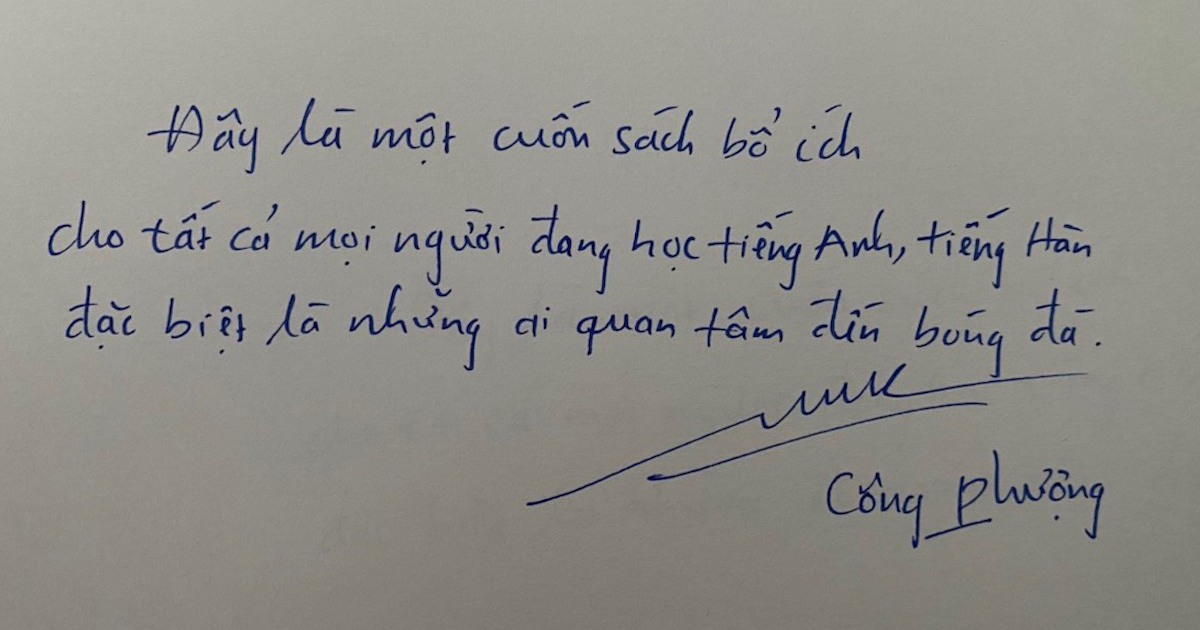 Đây là một cuốn sách bổ ích
cho tất cả mọi người đang học tiếng Anh, tiếng Hàn
đặc biệt là những ai quan tâm đến bóng đá.
Công Phượng